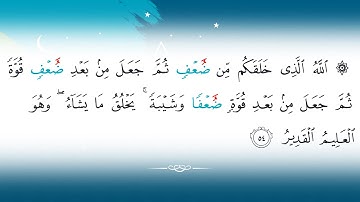 ۞ ٱللَّهُ ٱلَّذِى خَلَقَكُم مِّن ضُعْفٍ ثُمَّ جَعَلَ مِنۢ بَعْدِ ضُعْفٍ قُوَّةً
ثُمَّ جَعَلَ مِنۢ بَعْدِ قُوَّةٍ ضُعْفًا وَشَيْبَةً ۚ يَخْلُقُ مَا يَشَآءُ ۖ وَهُوَ
ٱلْعَلِيمُ ٱلْقَدِيرُ ٥٤